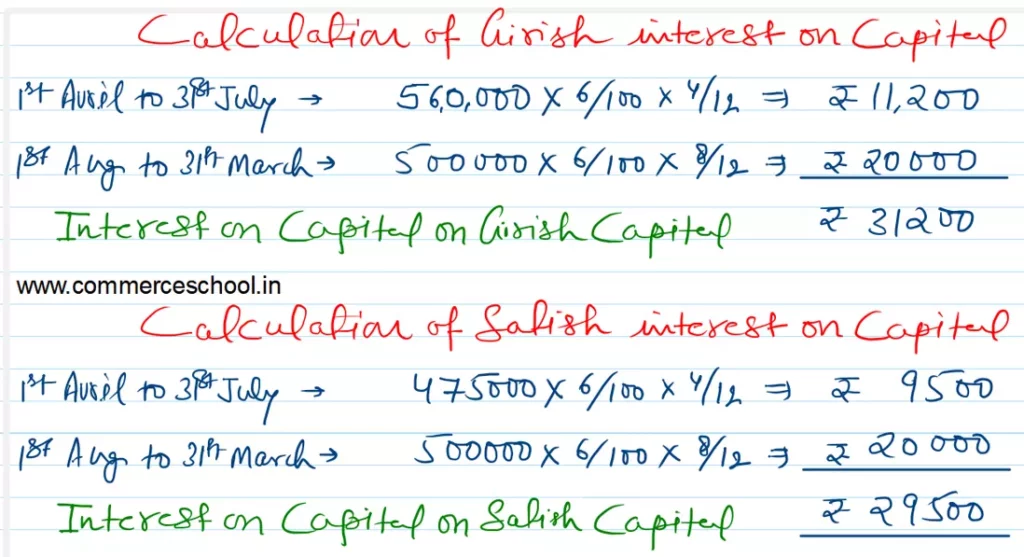 Calculation of Girish interest on Capital
1st April to 31st July → 56,0,000 × 6/100 × 4/12 ⇒ ₹ 11,200
1st Aug to 31th March → 500000 × 6/100 × 8/12 ⇒ ₹ 20000
Interest on Capital on Girish Capital ₹ 31200
www.commerceschool.in
Calculation of Satish interest on Capital
1st April to 31st July → 475000 × 6/100 × 4/12 ⇒ ₹ 9500
1st Aug to 31th March → 500000 × 6/100 × 8/12 ⇒ ₹ 20000
Interest on Capital on Satish Capital ₹ 29500